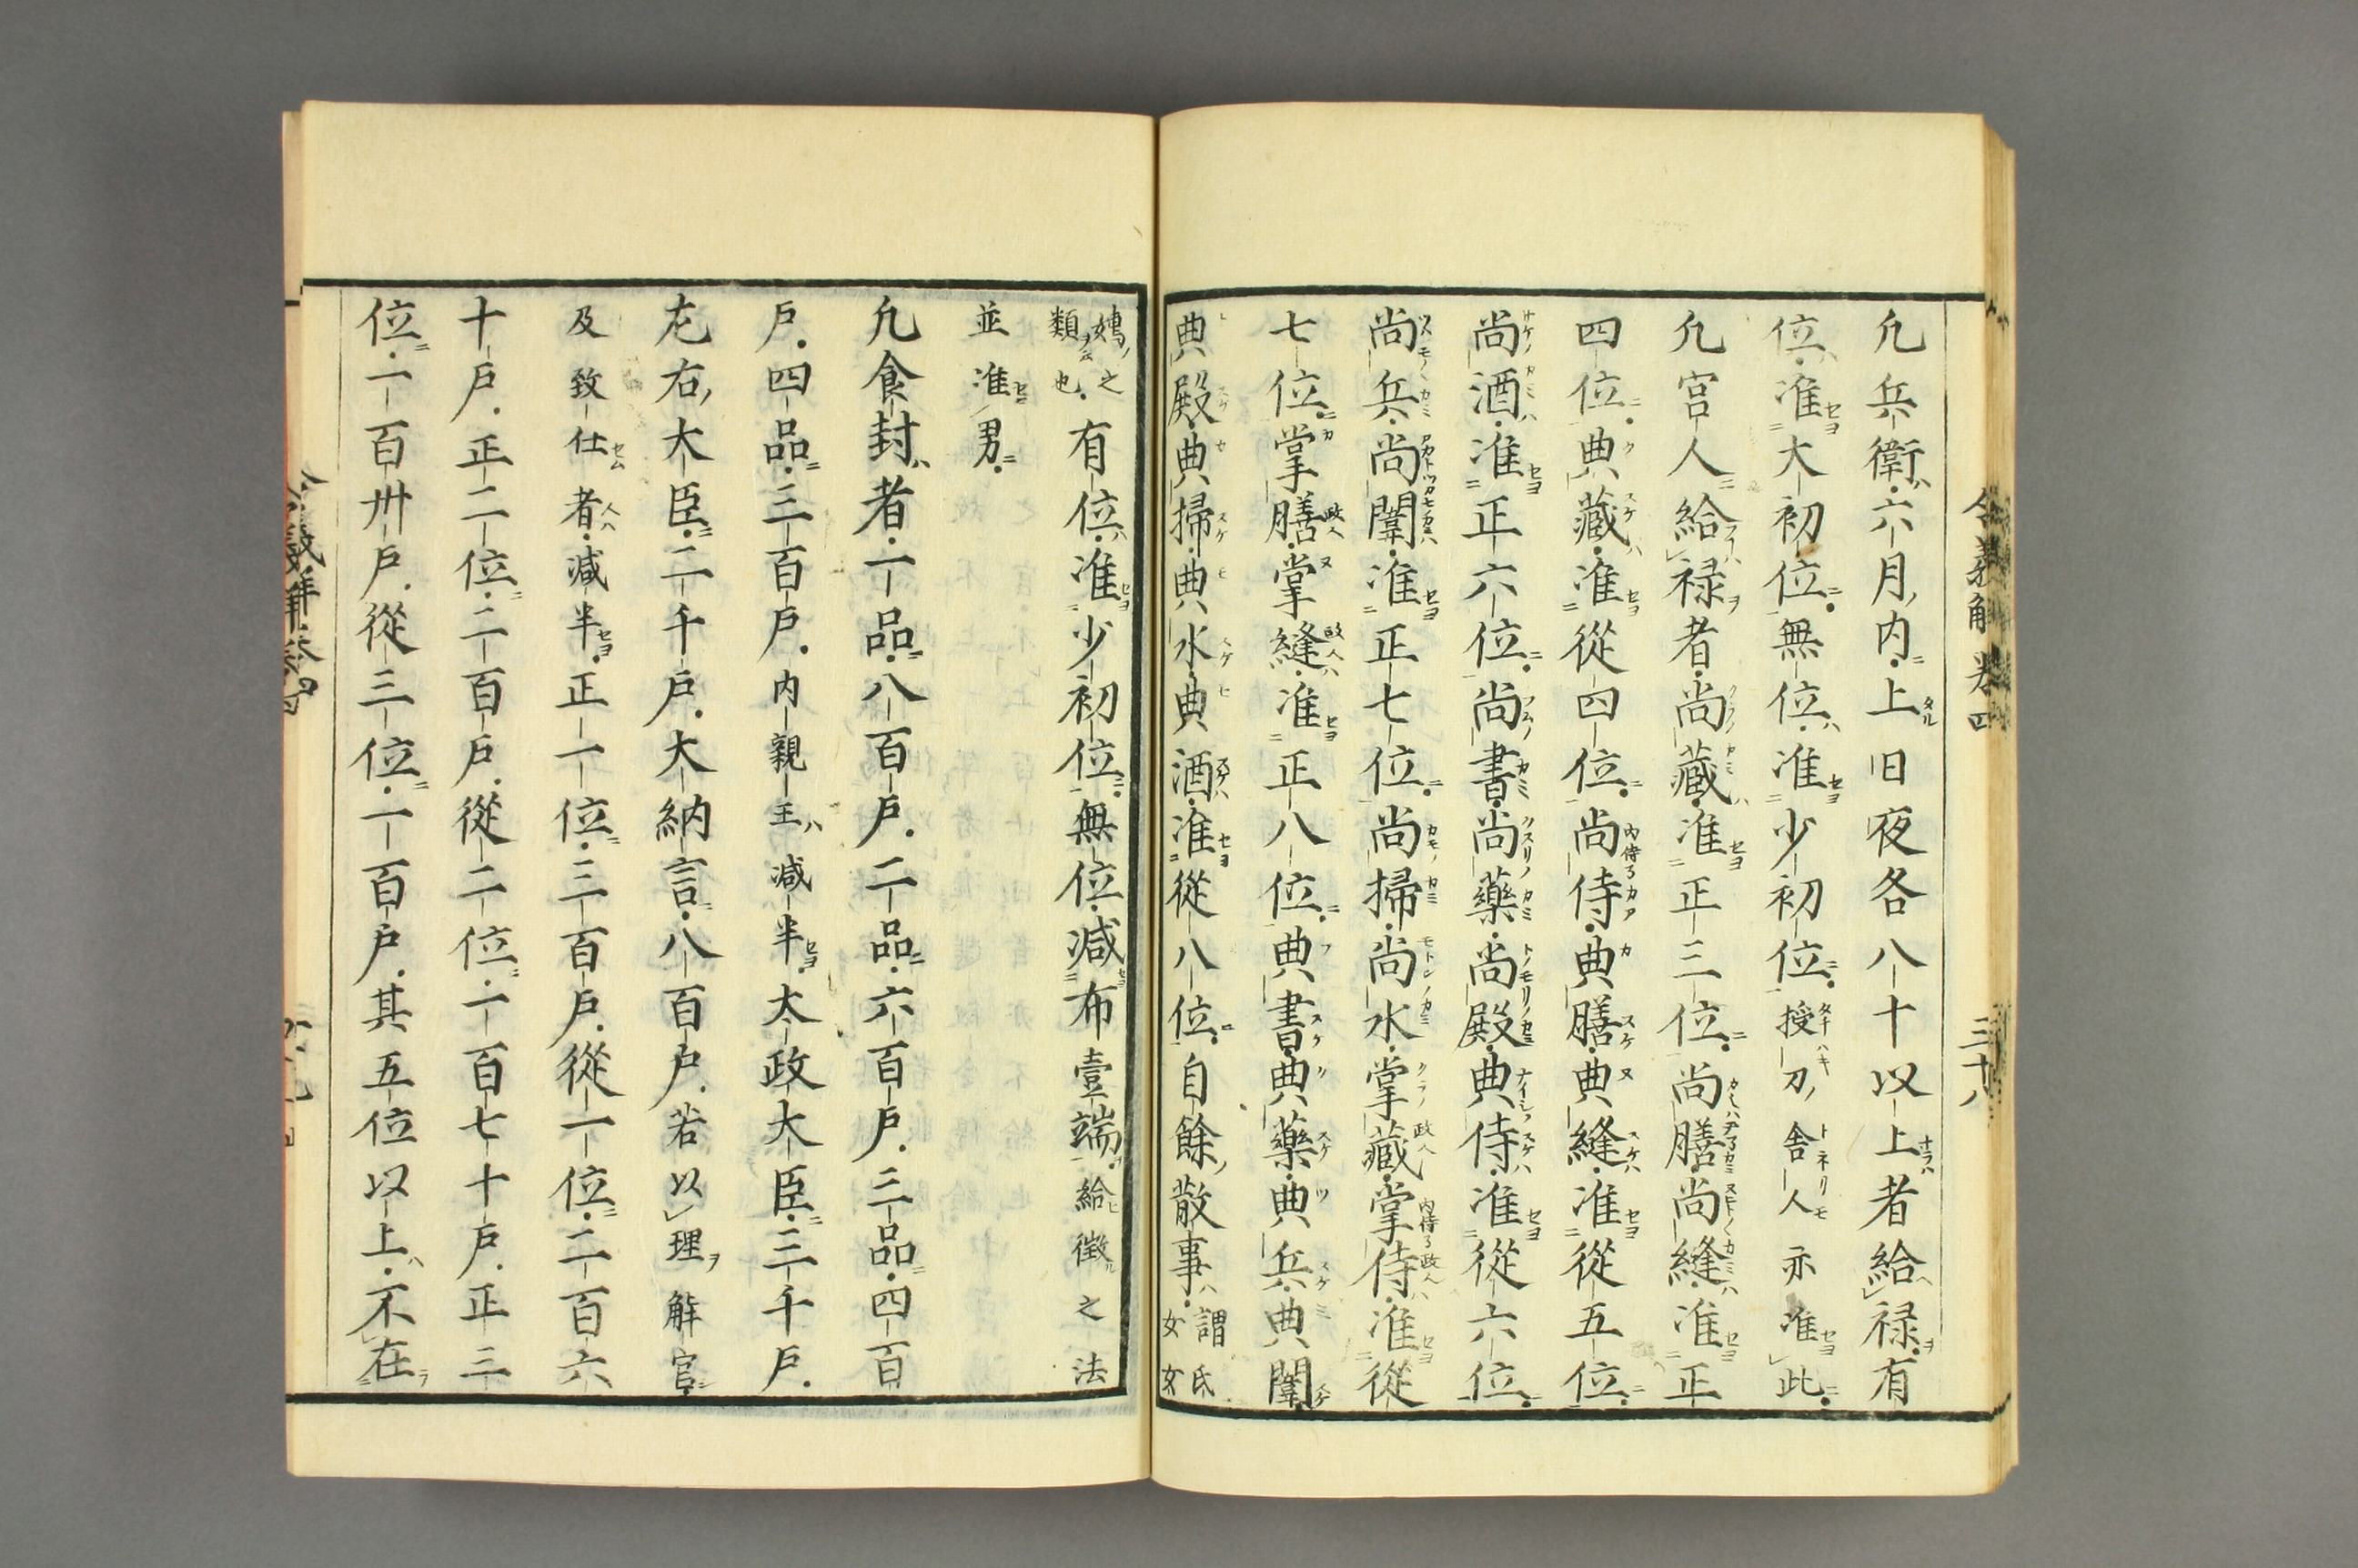 令義解卷四 三十八
凢兵衛六月内上日夜各八十以上者給禄有
位准大初位無位准少初位授刀舎人亦准此
凢宮人給禄者尚藏准正三位尚膳尚縫准正
四位典藏准從四位尚侍典膳典縫准從五位
尚酒准正六位尚書尚藥尚殿典侍准從六位
尚兵尚闈准正七位尚掃尚水掌藏掌侍准從
七位掌膳掌縫准正八位典書典藥典兵典闈
典殿典掃典水典酒准從八位自餘散事謂氏
女女
嬬之
類也有位准少初位無位減布壹端給徴之法
並准男
凢食封者一品八百戸二品六百戸三品四百
戸四品三百戸内親王減半太政大臣三千戸
左右大臣二千戸大納言八百戸若以理解官
及致仕者減半正一位三百戸從一位二百六
十戸正二位二百戸從二位一百七十戸正三
位一百卅戸從三位一百戸其五位以上不在